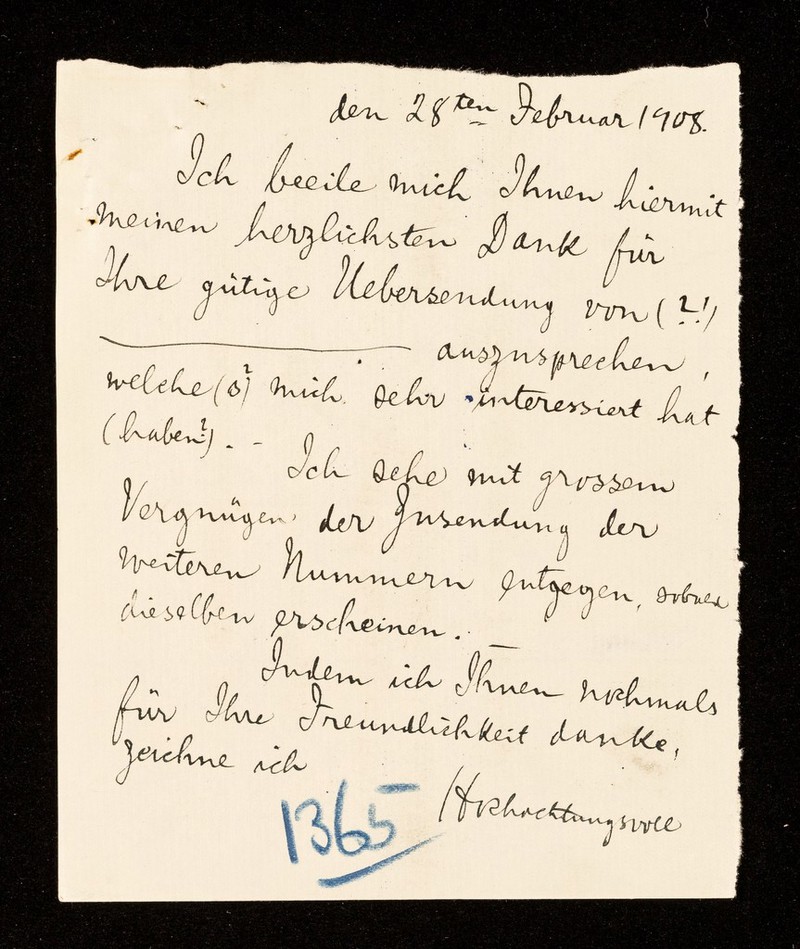 den 28ten Februar 1908.
Ich beeile mich Ihnen hiermit
meinen herzlichsten Dank für
Ihre gütige Uebersendung von (?!)
auszusprechen,
welche (s?) mich sehr interessiert hat
(haben?). -
Ich sehe mit grossem
Vergnügen der Zusendung der
weiteren Nummern entgegen, sobald
dieselben erscheinen. —
Indem ich Ihnen nochmals
für Ihre Freundlichkeit danke,
zeichne ich
Hochachtungsvoll
1365